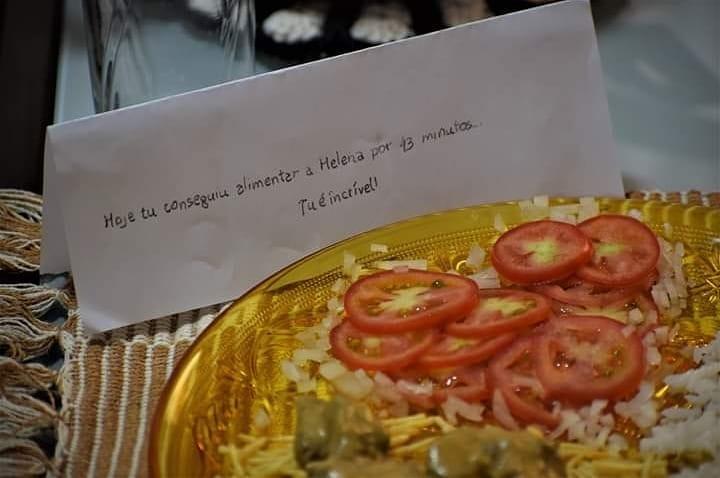 Hoje tu conseguiu alimentar a Helena por 43 minutos...
Tu é incrível!